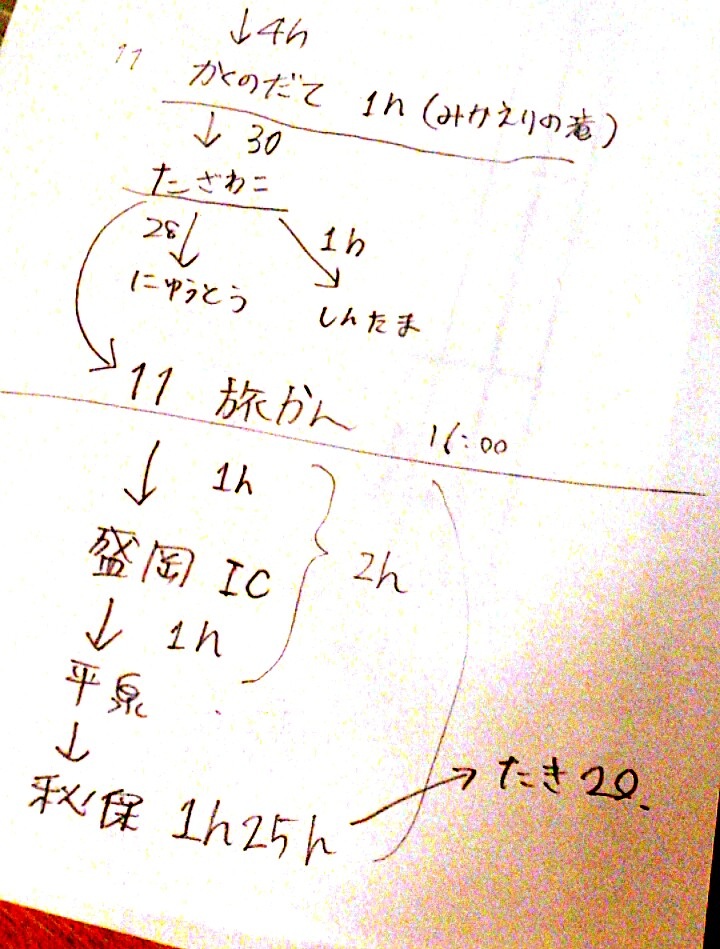 ↓4h
11
かくのだて 1h (みかえりの滝)
↓ 30
たざわこ
28↓ 1h
にゅうとう しんたま
11 旅かん 16:00
↓ 1h
盛岡 IC 2h
↓ 1h
平泉
↓
秋保 1h25h → たき20.